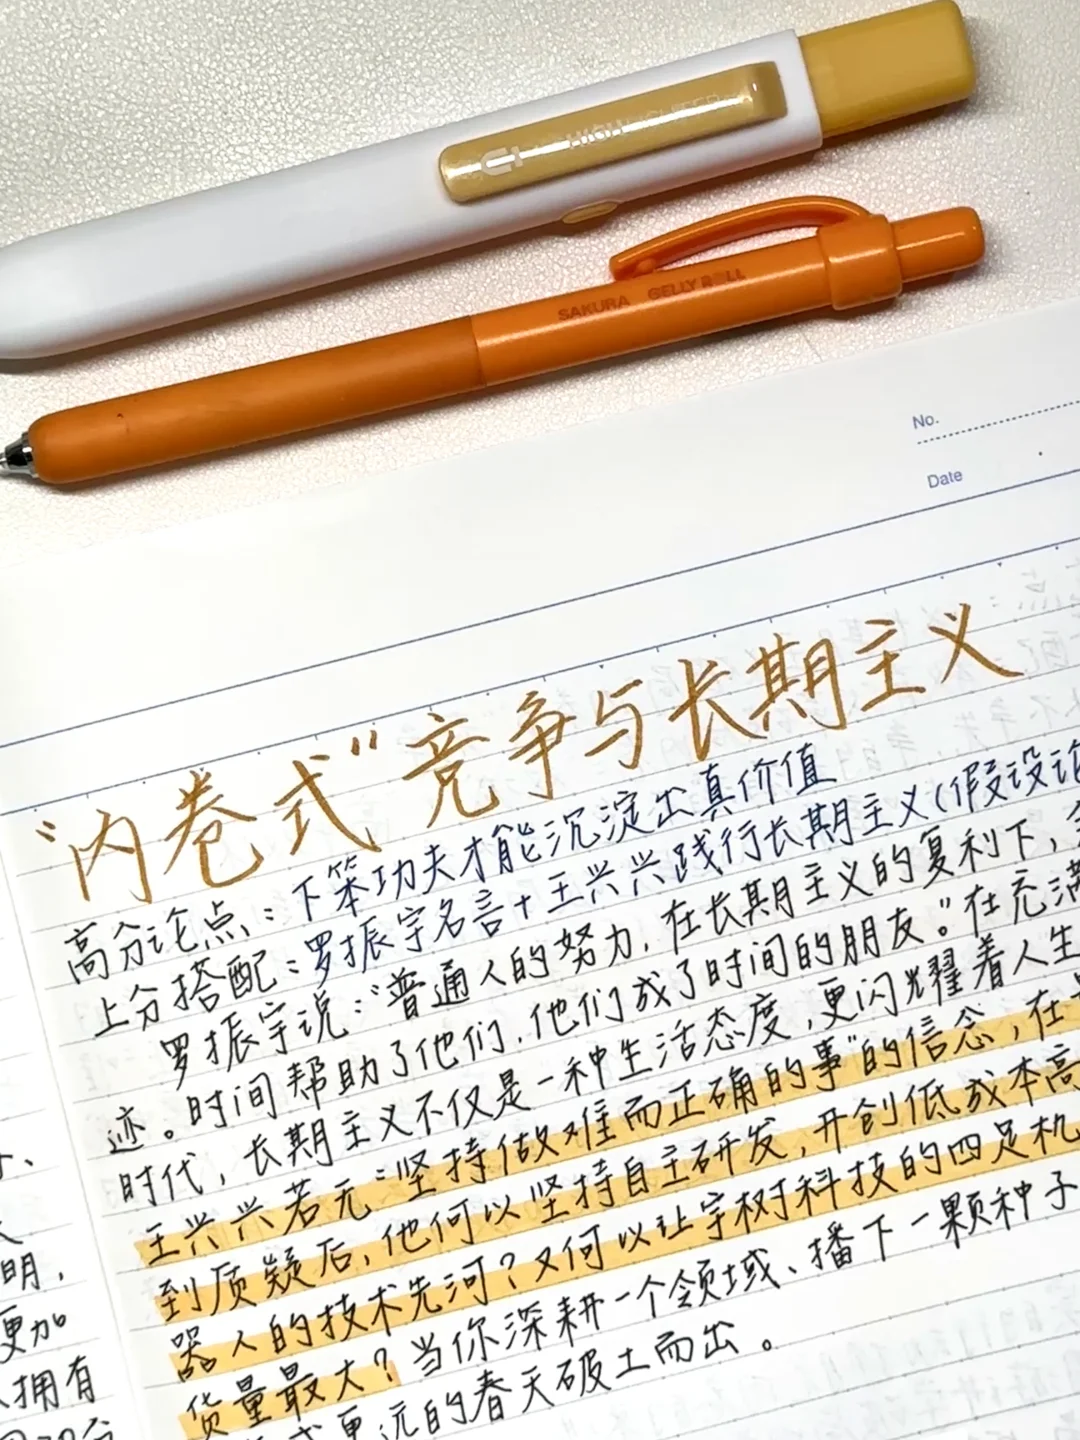 SAKURA GELLY ROLL
No.
Date
“内卷式”竞争与长期主义
高分论点：下笨功夫才能沉淀出真价值
上分搭配：罗振宇名言+王兴兴践行长期主义(假设论
罗振宇说：“普通人的努力，在长期主义的复利下，
迹。时间帮助了他们，他们成了时间的朋友。”在充满
时代，长期主义不仅是一种生活态度，更闪耀着人生
王兴兴若无“坚持做难而正确的事”的信念，在
到质疑后，他何以坚持自主研发，开创低成本高
器人的技术先河？又何以让宇树科技的四足机
货量最大？当你深耕一个领域、播下一颗种子
更远的春天破土而出。
明，
更加
拥有